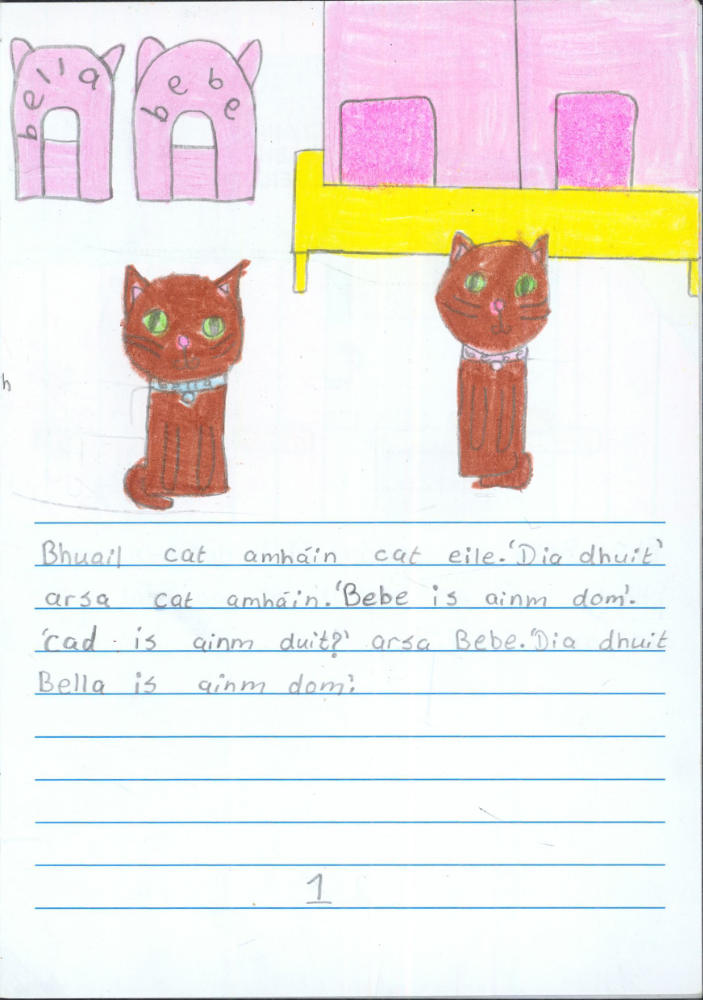 bella
bebe
Bella
Bhuail cat amháin cat eile. 'Dia dhuit'
arsa cat amháin. 'Bebe is ainm dom'.
'cad is ainm duit?' arsa Bebe. 'Dia dhuit
Bella is ainm dom'.
1